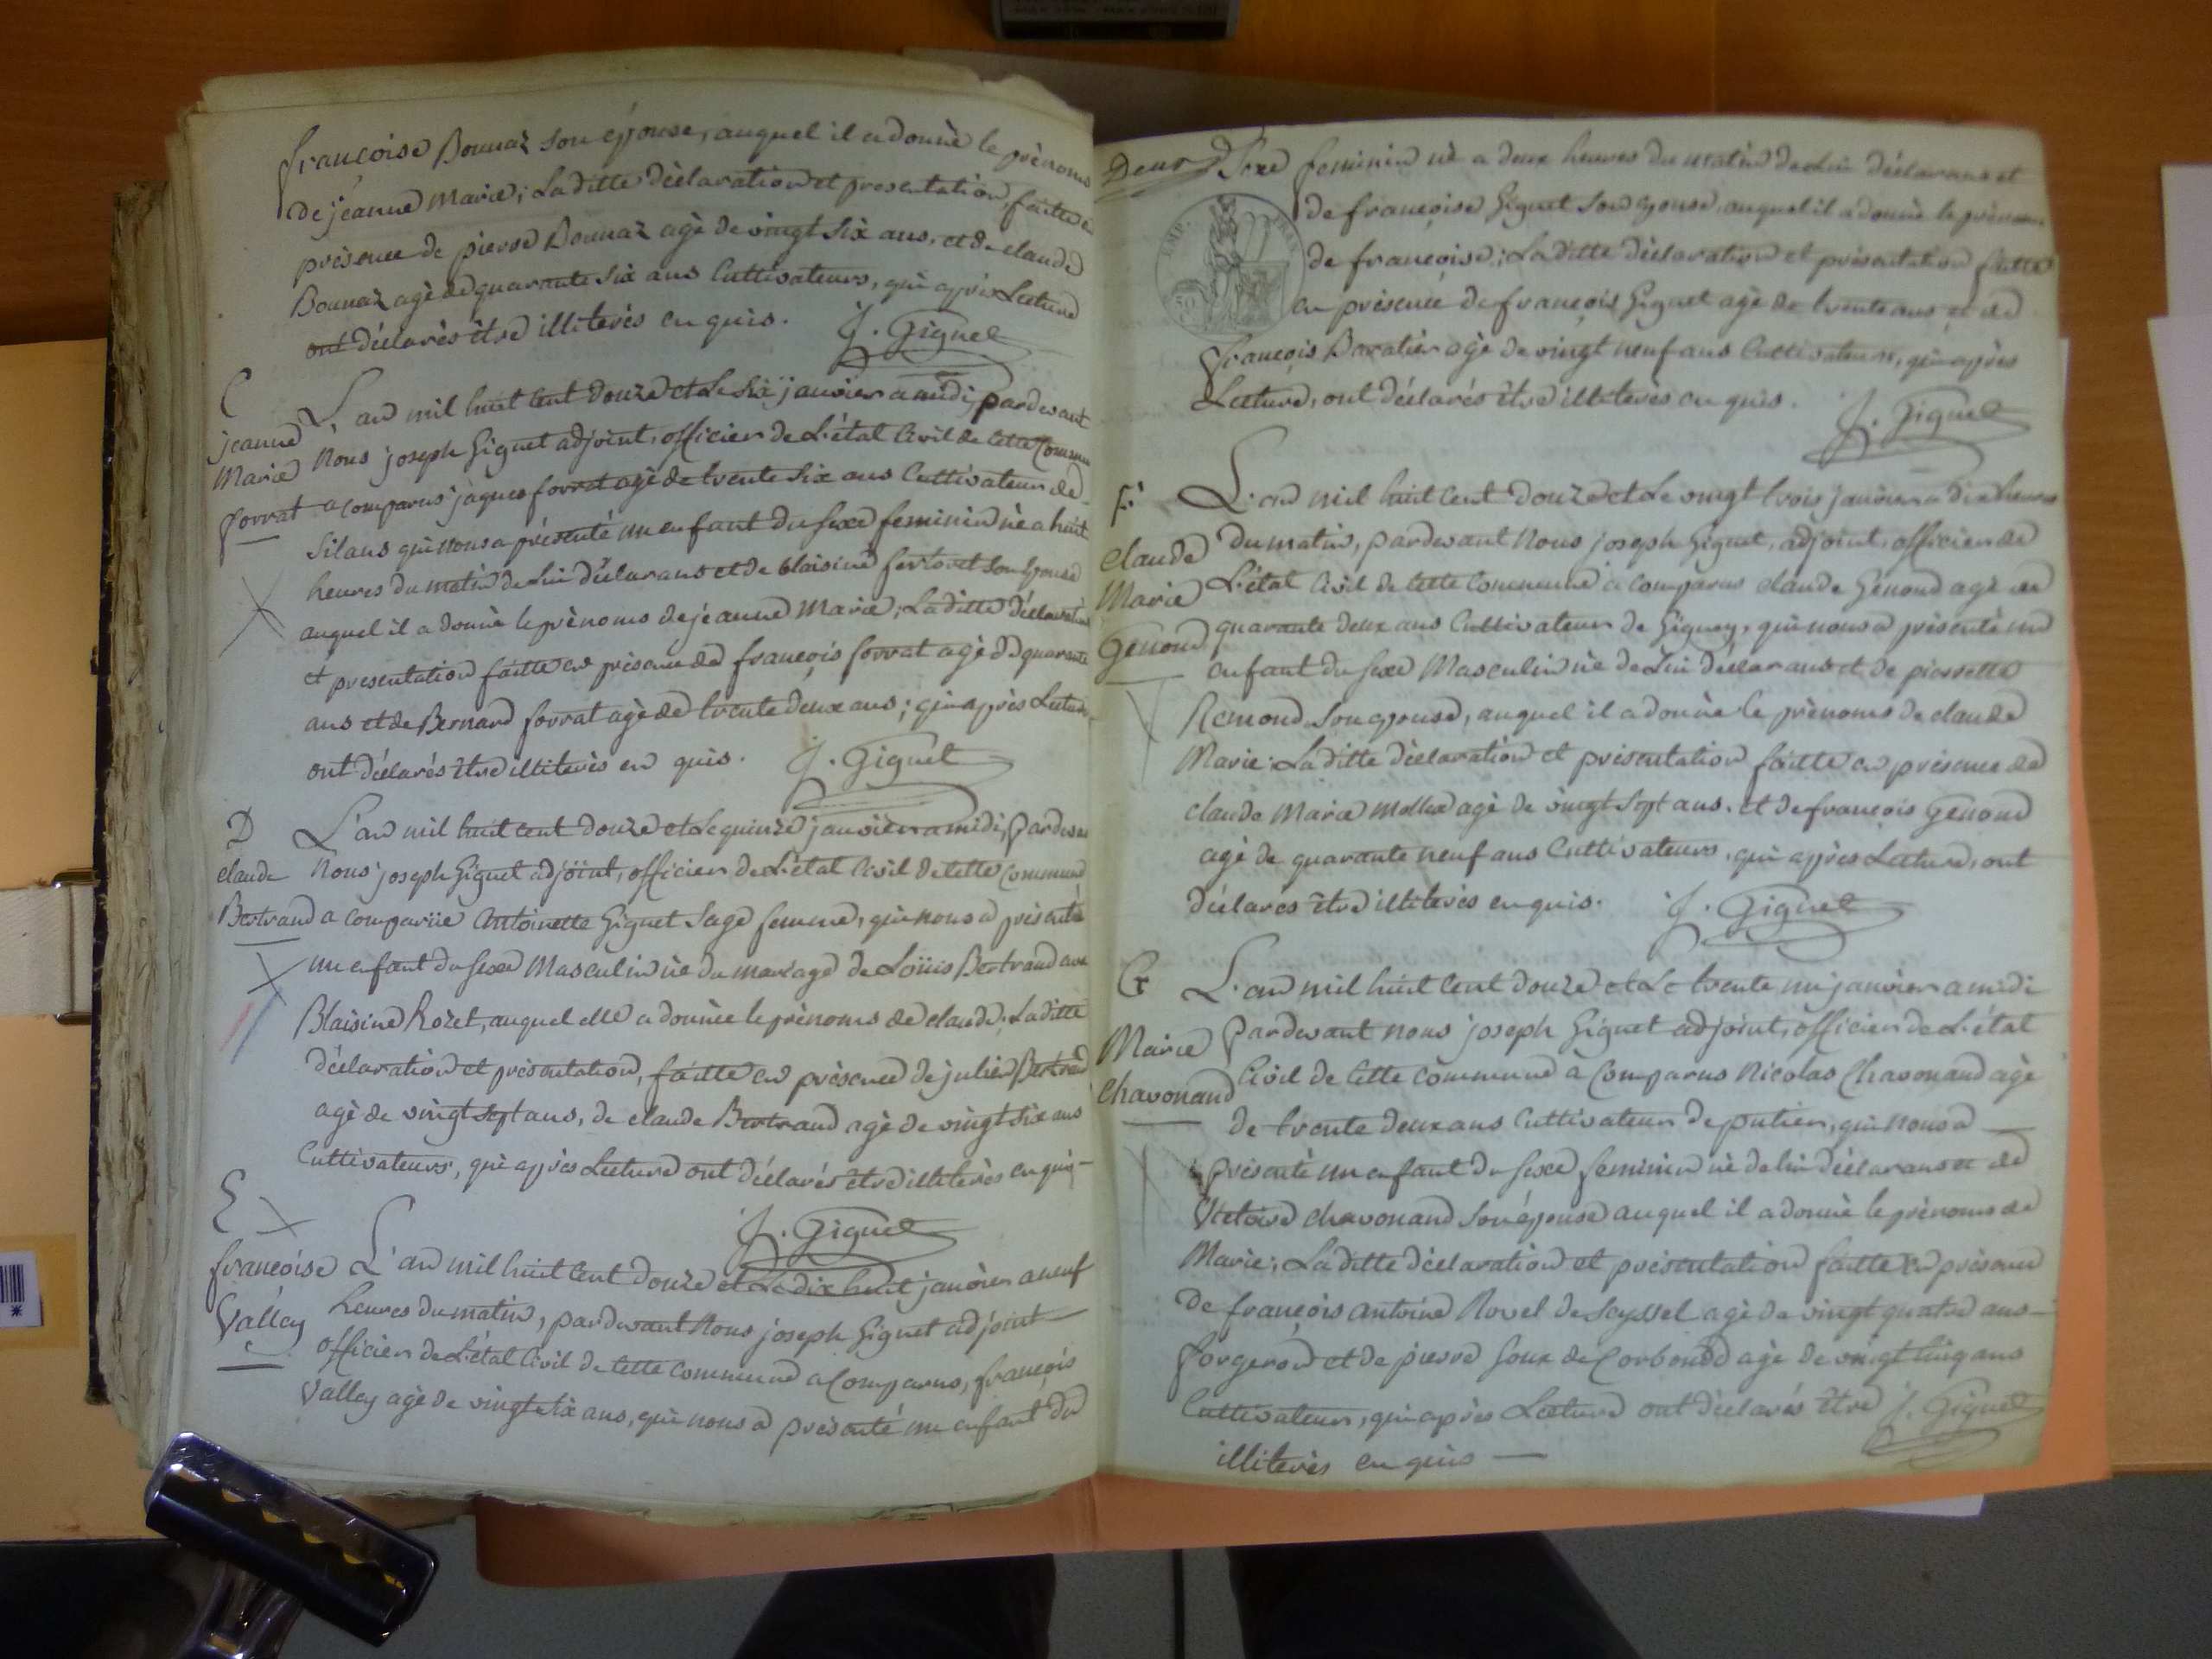 françoise Bounaz son épouse, auquel il a donnè le prènoms
de jeanne Marie; Laditte dèclaration et presentation faitte en
prèsence de pierre Bounaz agè de vingt six ans, et de claude
Bounaz agè de quarante six ans Cultivateurs, qui après Lecture
ont dèclarès être illiterès en quis. J. Giguet
C
jeanne
Marie
forrat
L'an mil huit cent douze et Le six janvier a midi, pardevant
Nous joseph Giguet adjoint, officier de L'état Civil de cette Commune
a comparus jaques forrat agè de trente six ans Cultivateur de
Silans qui nous a présenté un enfant du sexe feminin nè a huit
heures du matin de Lui dèclarans et de blaisine son Epouse
auquel il a donnè le prènoms de jeanne Marie; Laditte dèclaration
et presentation faitte en prèsence de françois forrat agè de quarante
ans et de Bernard forrat agè de trente deux ans; qui après Lecture
ont dèclarés être illiterès en quis. J. Giguet
D
claude
Bertrand
L'an mil huit cent douze et Le quinze janvier a midi, Pardevant
Nous joseph Giguet adjoint, officier de L'état Civil de cette Commune
a comparüe Antoinette Giguet Sage femme, qui nous a prèsenté
un enfant du sexe Masculin nè du mariage de Loüis Bertrand avec
Blaisine Rozet, auquel elle a donnèe le prènoms de claude. Laditte
dèclaration et prèsentation, faitte en prèsence de julien Bertrand
agè de vingt sept ans, de claude Bertrand agè de vingt six ans
Cultivateurs, qui après Lecture ont dèclarès être illiterès en quis
J. Giguet
E
françoise
Valley
L'an mil huit cent douze et Le dix huit janvier a neuf
heures du matin, pardevant Nous joseph Giguet adjoint
officier de L'état Civil de cette Commune a Comparus, françois
Valley agè de vingt six ans, qui nous a prèsenté un enfant du
Deux
Sexe feminin nè a deux heures du matin de Lui dèclarans et
de françoise Giguet son epouse, auquel il a donnè le prènoms
de françoise; Laditte dèclaration et prèsentation faitte
en prèsence de françois Giguet agè de trente ans et de
françois Baratier agè de vingt neuf ans Cultivateurs, qui après
Lecture, ont dèclarés être illiterès en quis. J. Giguet
F
claude
Marie
Genond
L'an mil huit cent douze et Le vingt trois janvier a dix heures
du matin, pardevant Nous joseph Giguet, adjoint, officier de
L'état Civil de cette Commune a comparus claude Genond agè de
quarante deux ans Cultivateur de Gignez, qui nous a prèsentè un
enfant du sexe Masculin nè de Lui dèclarans et de pierrette
Remond son epouse, auquel il a donnè le prènoms de claude
Marie. Laditte dèclaration et prèsentation faitte en prèsence de
claude Marie mollex agè de vingt sept ans, et de françois Genond
agè de quarante neuf ans Cultivateurs, qui après Lecture, ont
dèclarés être illiterès en quis. J. Giguet
G
Marie
Chavonand
L'an mil huit cent douze et Le trente un janvier a midi
Pardevant nous joseph Giguet adjoint, officier de L'état
Civil de cette commune à Comparus Nicolas Chavonand agè
de trente deux ans Cultivateur de putier, qui nous a
prèsentè un enfant du sexe feminin nè de lui dèclarans et de
Victoire chavonand son épouse auquel il a donnè le prènoms de
Marie; Laditte dèclaration et prèsentation faitte en prèsence
de françois Antoine Rovel de Seyssel agè de vingt quatre ans
forgeron et de pierre Goux de Corbonod agè de vingt cinq ans
Cultivateur, qui après Lecture ont dèclarés être J. Giguet
illiterès en quis